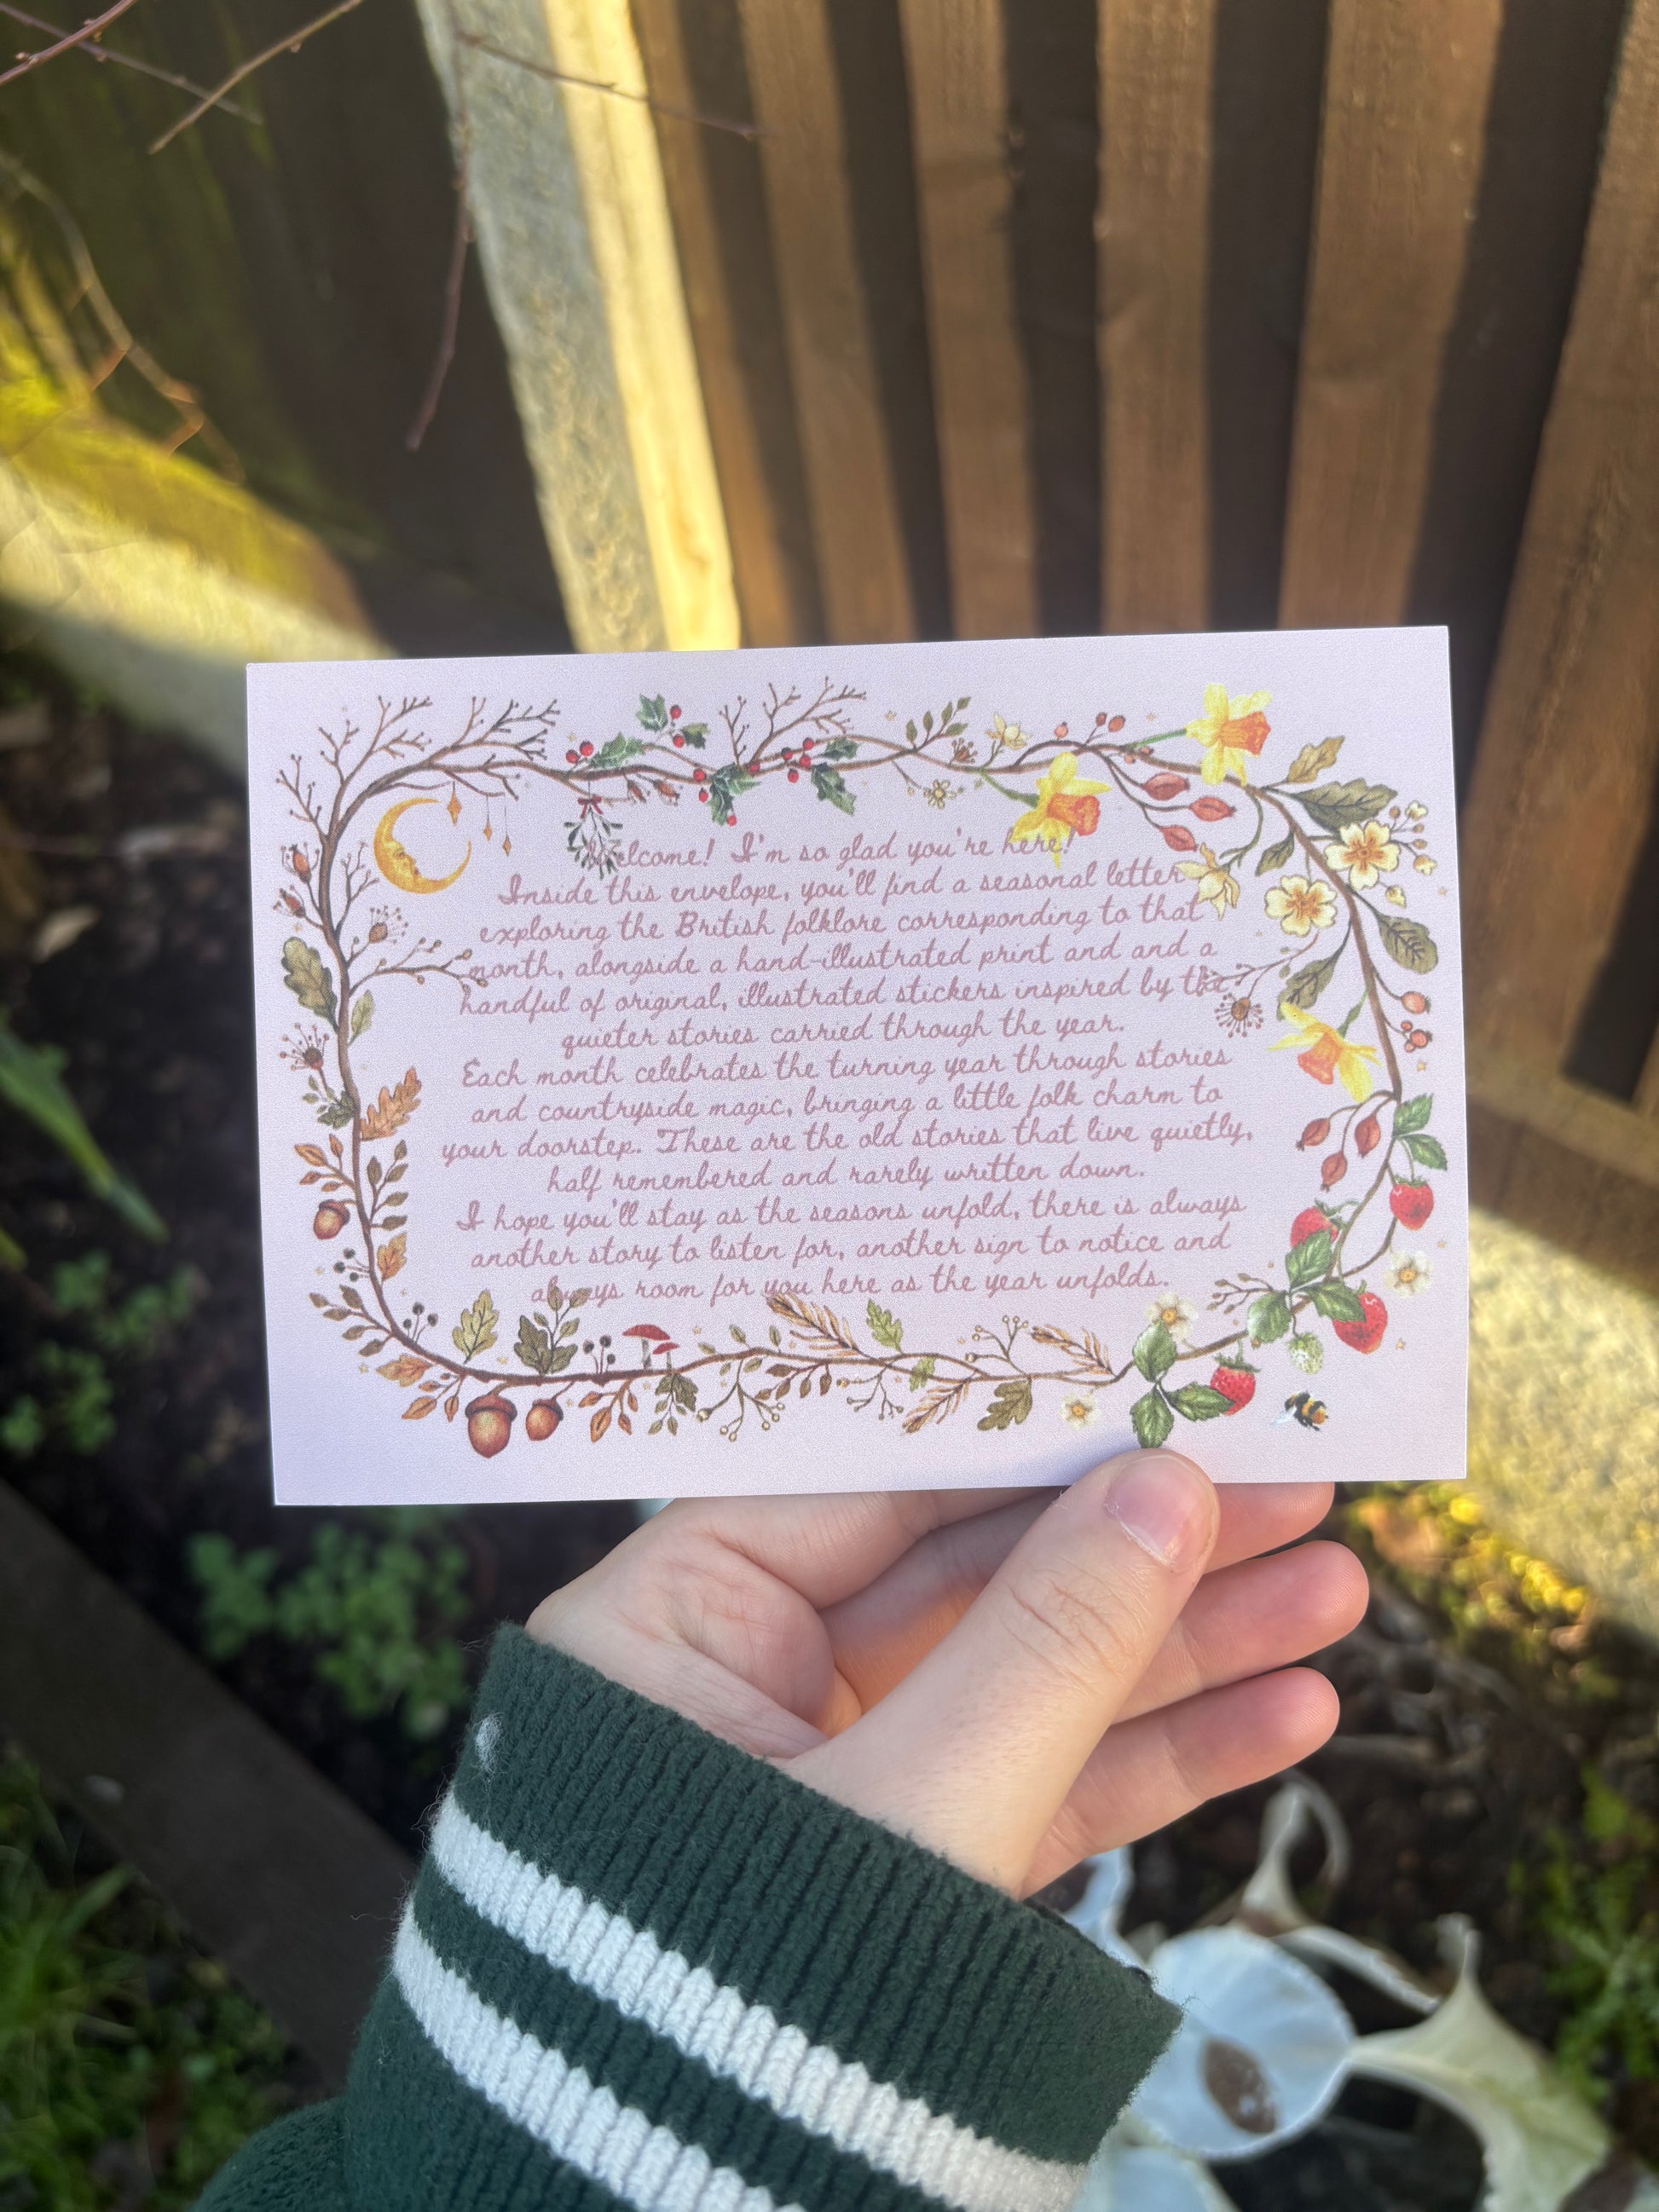 Welcome! I'm so glad you're here!
Inside this envelope, you'll find a seasonal letter
exploring the British folklore corresponding to that
month, alongside a hand-illustrated print and and a
handful of original, illustrated stickers inspired by the
quieter stories carried through the year.
Each month celebrates the turning year through stories
and countryside magic, bringing a little folk charm to
your doorstep. These are the old stories that live quietly,
half remembered and rarely written down.
I hope you'll stay as the seasons unfold, there is always
another story to listen for, another sign to notice and
always room for you here as the year unfolds.